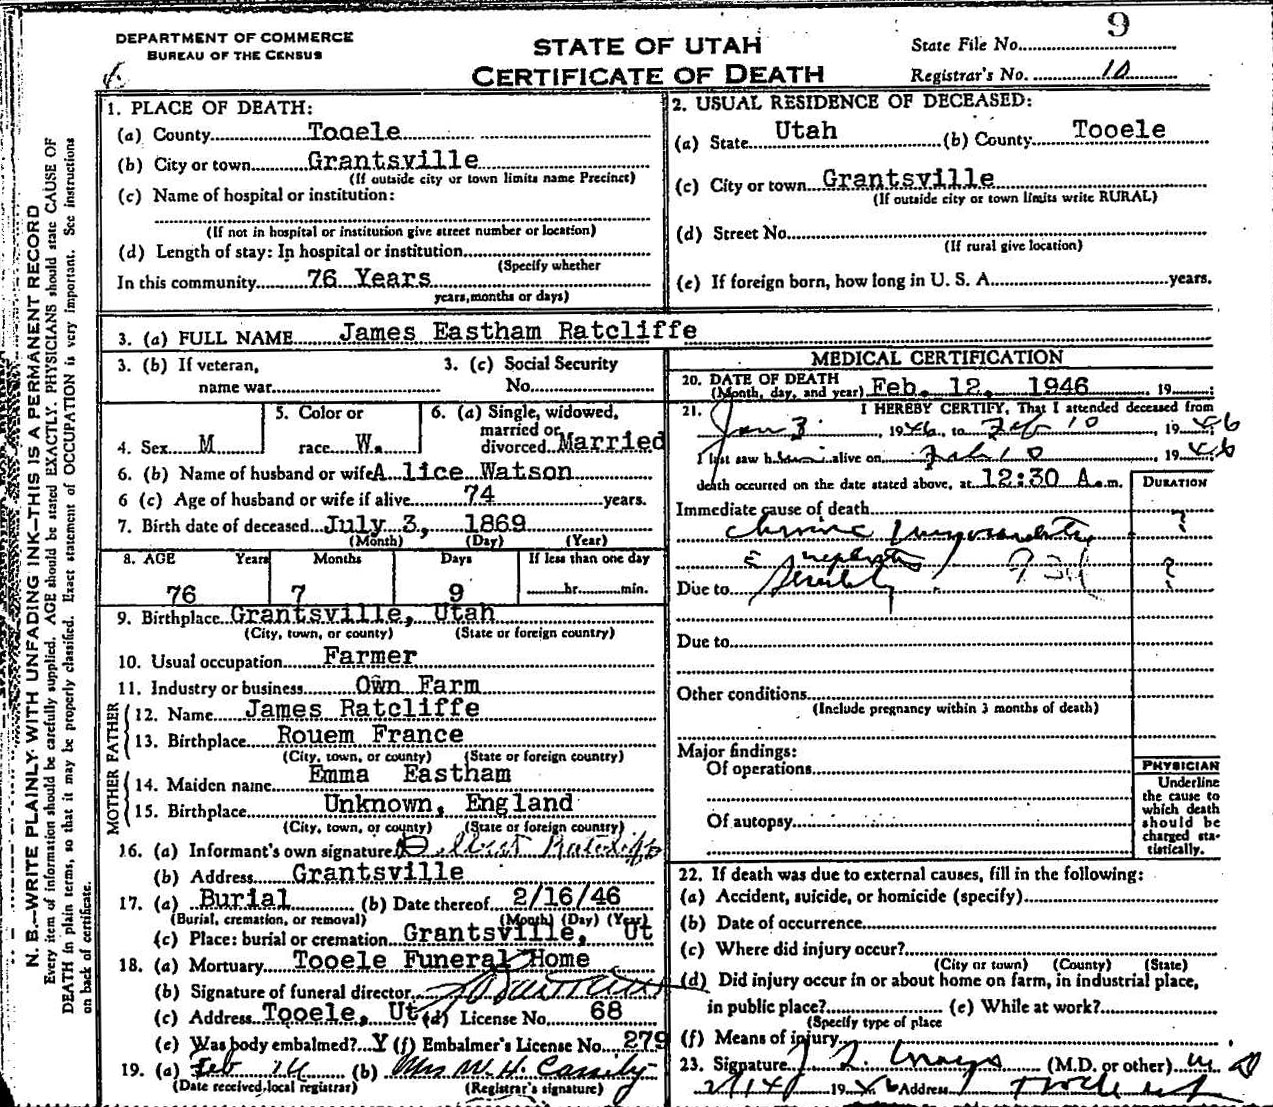 DEPARTMENT OF COMMERCE
BUREAU OF THE CENSUS
STATE OF UTAH
CERTIFICATE OF DEATH
State File No. 9
Registrar's No. 10
N. B.—WRITE PLAINLY WITH UNFADING INK—THIS IS A PERMANENT RECORD
Every item of information should be carefully supplied. AGE should be stated EXACTLY. PHYSICIANS should state CAUSE OF
DEATH in plain terms, so that it may be properly classified. Exact statement of OCCUPATION is very important. See instructions
on back of certificate.
1. PLACE OF DEATH:
(a) County Tooele
(b) City or town Grantsville
(If outside city or town limits name Precinct)
(c) Name of hospital or institution:
(If not in hospital or institution give street number or location)
(d) Length of stay: In hospital or institution
(Specify whether
In this community 76 Years
years, months or days)
2. USUAL RESIDENCE OF DECEASED:
(a) State Utah (b) County Tooele
(c) City or town Grantsville
(If outside city or town limits write RURAL)
(d) Street No.
(If rural give location)
(e) If foreign born, how long in U. S. A. years.
3. (a) FULL NAME James Eastham Ratcliffe
3. (b) If veteran,
name war
3. (c) Social Security
No.
4. Sex M
5. Color or
race W.
6. (a) Single, widowed,
married or
divorced Married
6. (b) Name of husband or wife A lice Watson
6 (c) Age of husband or wife if alive 74 years.
7. Birth date of deceased July 3, 1869
(Month) (Day) (Year)
8. AGE Years Months Days If less than one day
76 7 9 hr. min.
9. Birthplace Grantsville, Utah
(City, town, or county) (State or foreign country)
10. Usual occupation Farmer
11. Industry or business Own Farm
FATHER
12. Name James Ratcliffe
13. Birthplace Rouem France
(City, town, or county) (State or foreign country)
MOTHER
14. Maiden name Emma Eastham
15. Birthplace Unknown, England
(City, town, or county) (State or foreign country)
16. (a) Informant's own signature Ratcliffe
(b) Address Grantsville
17. (a) Burial (b) Date thereof 2/16/46
(Burial, cremation, or removal) (Month) (Day) (Year)
(c) Place: burial or cremation Grantsville, Ut
18. (a) Mortuary Tooele Funeral Home
(b) Signature of funeral director
(c) Address Tooele, Ut (d) License No. 68
(e) Was body embalmed? Y (f) Embalmer's License No. 279
19. (a) Feb (b) Mrs W. H. Cassity
(Date received, local registrar) (Registrar's signature)
MEDICAL CERTIFICATION
20. DATE OF DEATH
(Month, day, and year) Feb. 12, 1946 19 ;
21. I HEREBY CERTIFY, That I attended deceased from
Jan 3, 1946, to Feb 10, 1946
I last saw him alive on Feb 10, 1946
death occurred on the date stated above, at 12:30 A.m.
DURATION
Immediate cause of death
Chronic Myocarditis ?
nephritis 93d
Due to Senility ?
Due to
Other conditions
(Include pregnancy within 3 months of death)
Major findings:
Of operations
Of autopsy
PHYSICIAN
Underline
the cause to
which death
should be
charged sta-
tistically.
22. If death was due to external causes, fill in the following:
(a) Accident, suicide, or homicide (specify)
(b) Date of occurrence
(c) Where did injury occur?
(City or town) (County) (State)
(d) Did injury occur in or about home on farm, in industrial place,
in public place? (e) While at work?
(Specify type of place
(f) Means of injury
23. Signature (M.D. or other) M D
2/14/ 1946 Address Tooele Ut